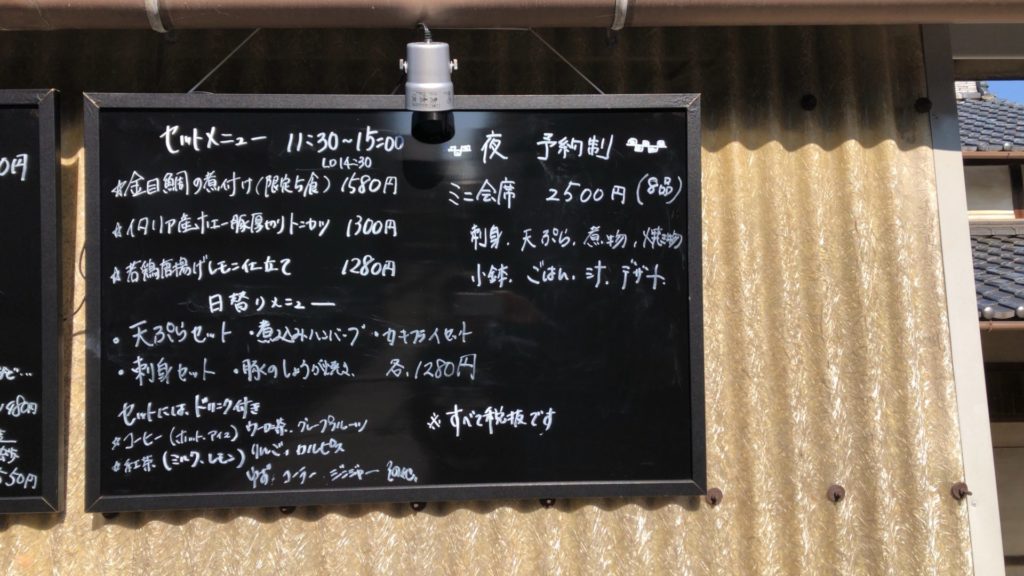 0円
ど…
480円
550円
セットメニュー 11:30~15:00
LO 14:30
☆金目鯛の煮付け(限定5食) 1580円
☆イタリア産ホエー豚厚切りトンカツ 1300円
☆若鶏唐揚げレモン仕立て 1280円
日替りメニュー
・天ぷらセット ・煮込みハンバーグ ・カキフライセット
・刺身セット ・豚のしょうが焼き 各1280円
セットには、ドリンク付き
☆コーヒー(ホット、アイス) ウーロン茶、グレープフルーツ
☆紅茶(ミルク、レモン) りんご、カルピス
ゆず、コーラ、ジンジャー
夜 予約制
ミニ会席 2500円(8品)
刺身、天ぷら、煮物、焼物
小鉢、ごはん、汁、デザート
※すべて税抜です